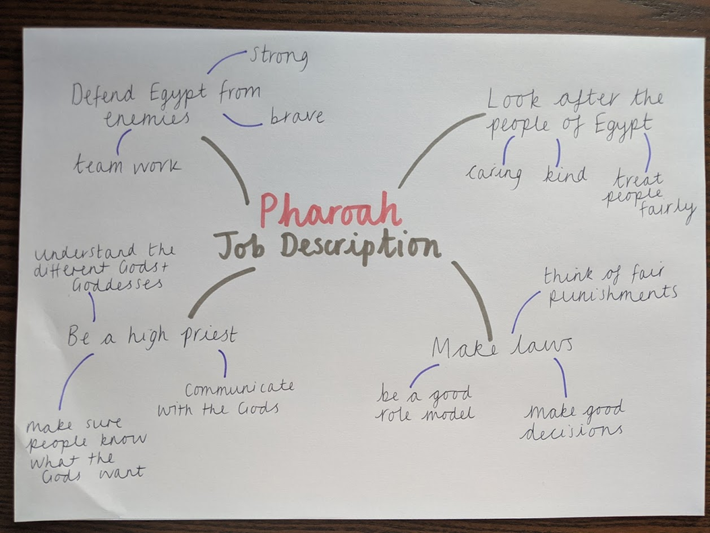 Pharoah
Job Description
Defend Egypt from
enemies
strong
brave
team work
Look after the
people of Egypt
caring
kind
treat
people
fairly
Be a high priest
understand the
different Gods +
Goddesses
communicate
with the Gods
make sure
people know
what the
Gods want
Make laws
think of fair
punishments
be a good
role model
make good
decisions